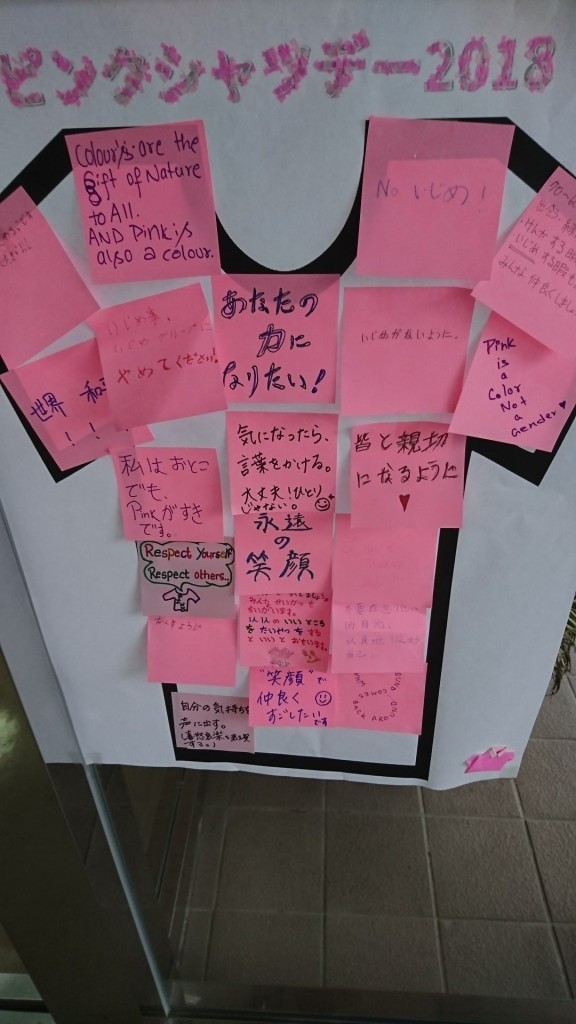 ピンクシャツデー2018
Colour's are the
Gift of Nature
to All.
AND Pink is
also a colour.
No いじめ！
いじめ事、
やめてください！
あなたの
力に
なりたい！
いじめがないように。
みんな 仲良くしまし
世界
！！
Pink
is
a
Color
Not
a
Gender
私はおとこ
でも、
Pinkがすき
です。
気になったら、
言葉をかける。
大丈夫！ひとり
じゃない。
皆と親切
になるように
永遠
の
笑顔
Respect Yourself
Respect others..
みんな せいかつも
ちがいます。
1人1人の いいところ
を たいせつ を する
と いいと おもいます。
"笑顔"で
仲良く
すごしたいです
COMES
BACK AROUND
自分の気持ちを
声に出す。
(喜怒哀楽を表現
する。)